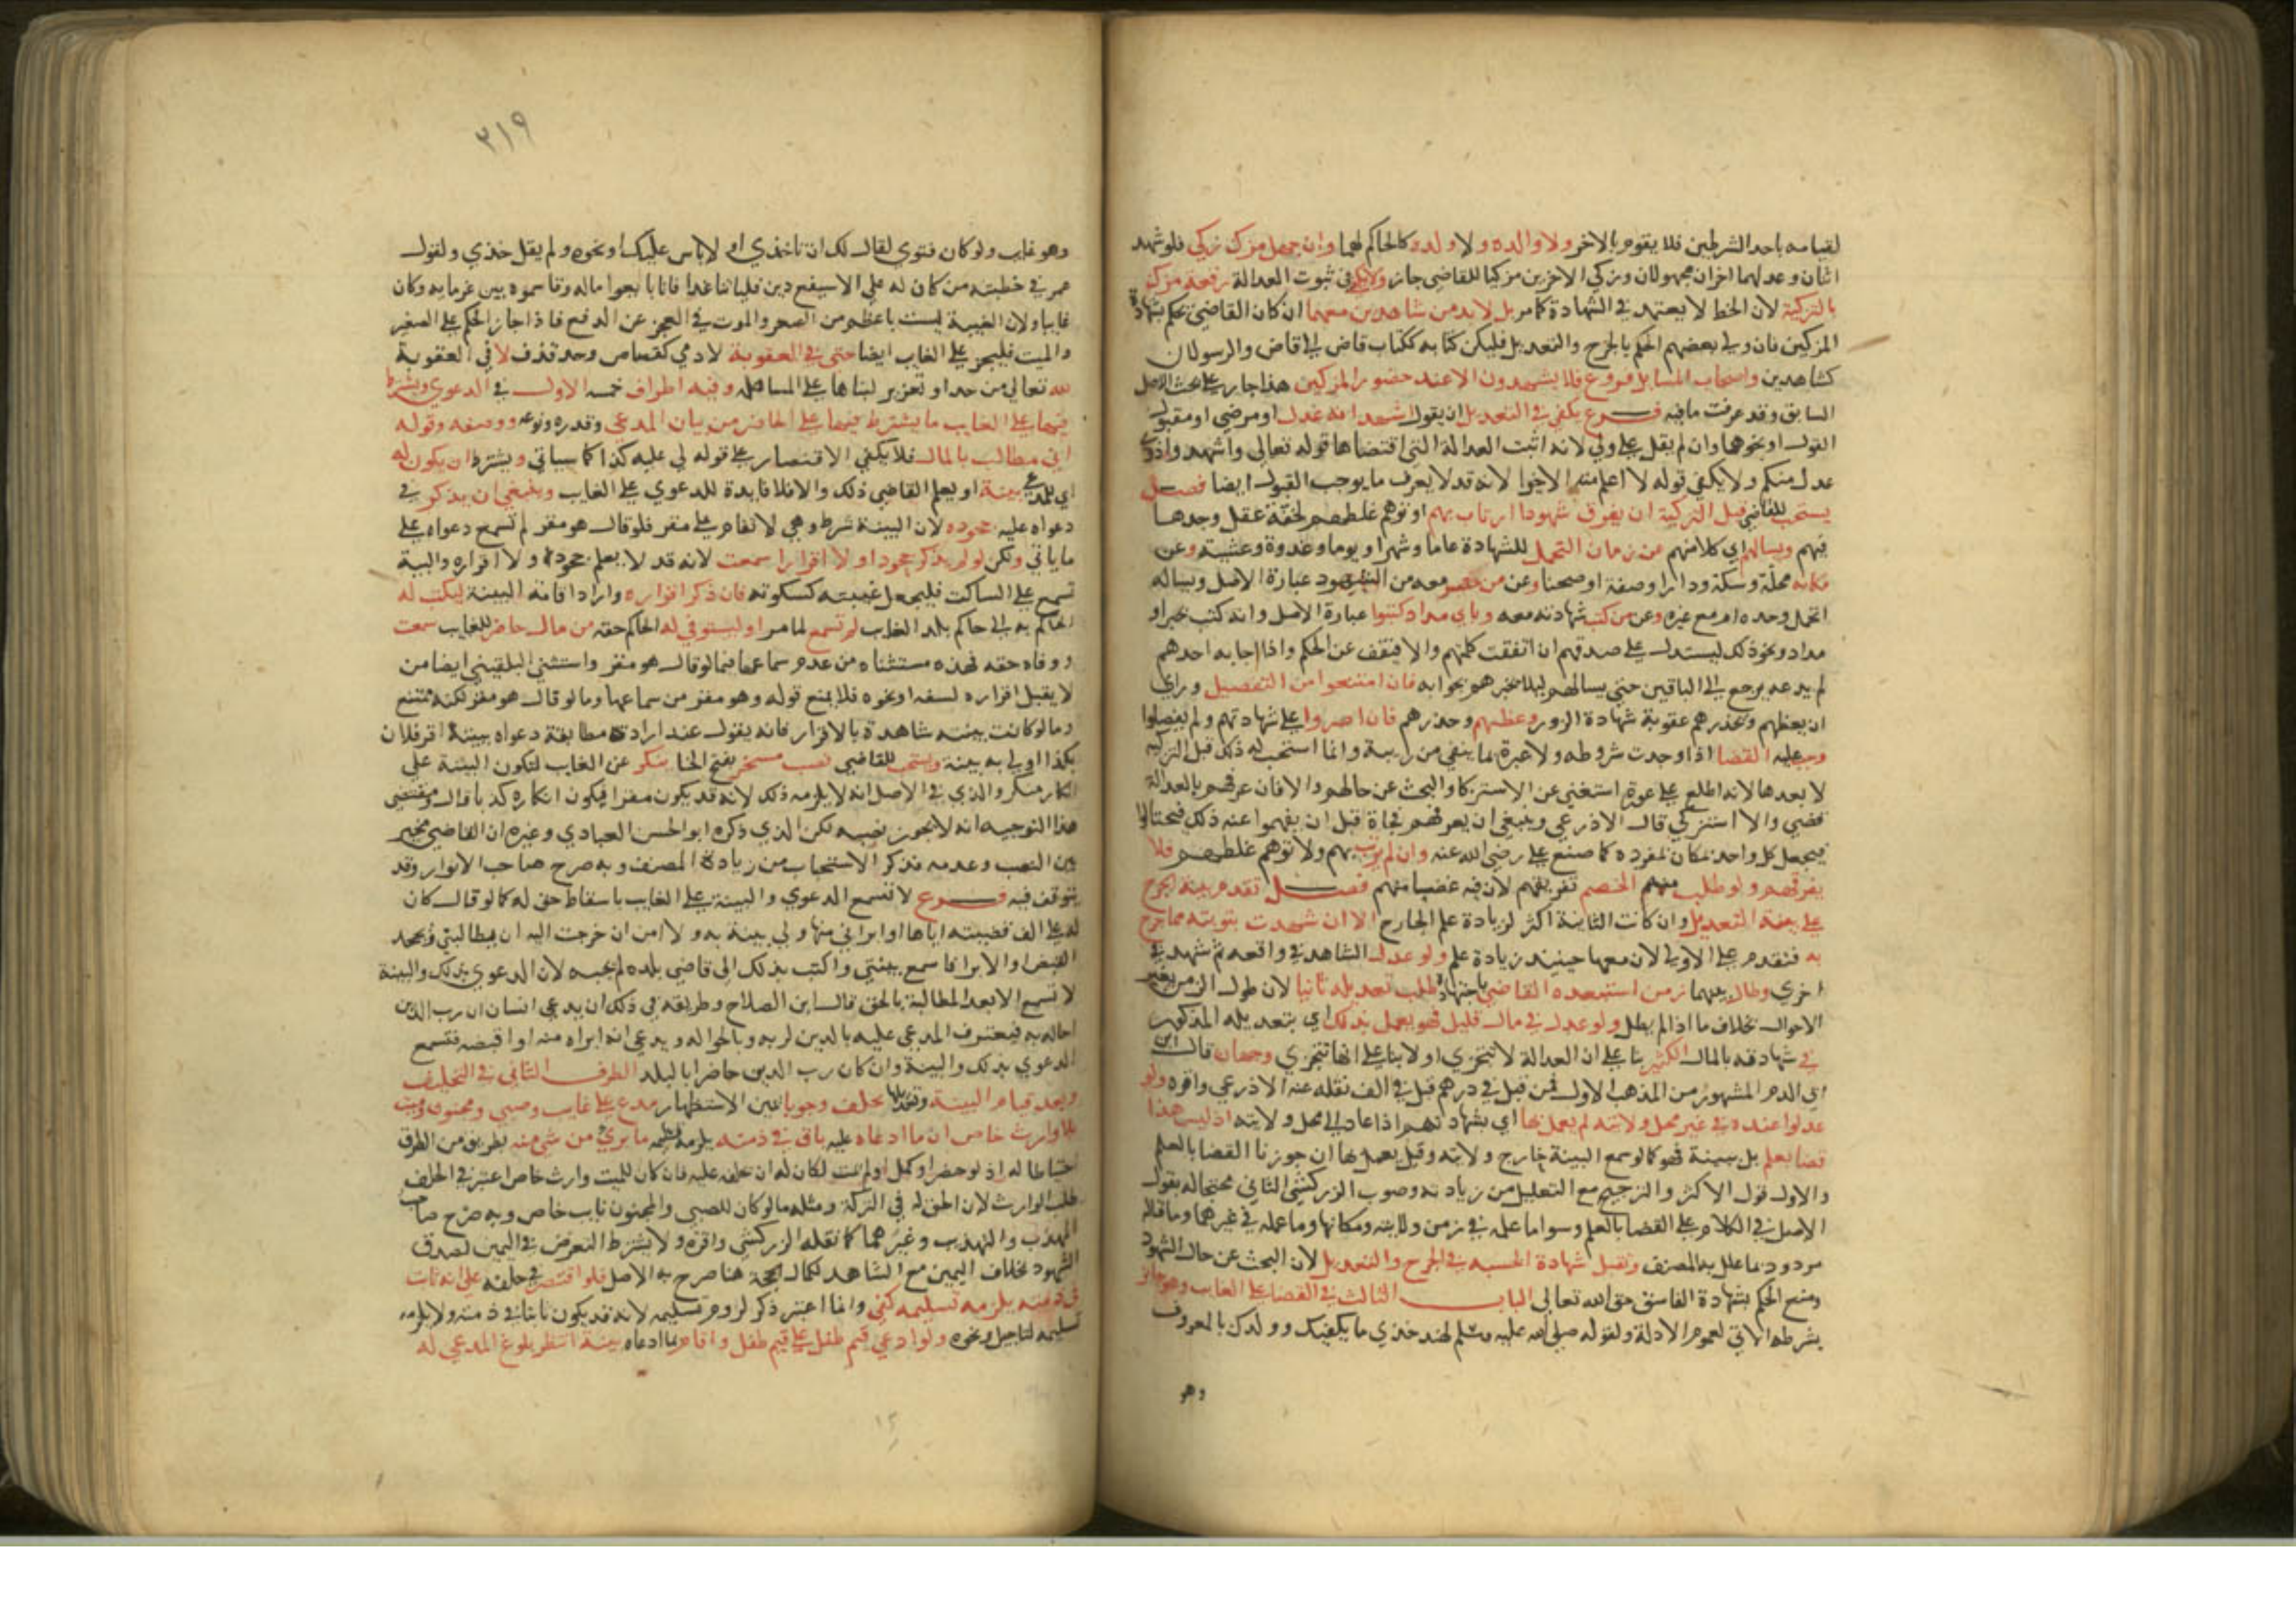 لقيامه باحد الشرطين فلا يقوم بالاخر ولا والده ولا ولده كالحاكم لهما وان جهل مزك زكي فلو شهد
اثنان وعدلهما اخران مجهولان وزكي الاخرين مزكيا للقاضي جاز ولا يكفي في ثبوت العدالة رقعة مزك
بالتزكية لان الخط لا يعتمد في الشهادة كما مر بل لا بد من شاهدين معها ان كان القاضي يحكم بشهادة
المزكين فان ولي بعضهم الحكم بالجرح والتعديل فليكن كتابه ككتاب قاض الى قاض والرسولان
كشاهدين واصحاب المسايل فروع فلا يشهدون الا عند حضور المزكين هذا جار على بحث الاصل
السابق وقد عرفت ما فيه فرع يكفي في التعديل ان يقول اشهد انه عدل او مرضي او مقبول
القول او نحوهما وان لم يقل علي ولي لانه اثبت العدالة التي اقتضاها قوله تعالى واشهدوا ذوي
عدل منكم ولا يكفي قوله لا اعلم منه الا خيرا لانه قد لا يعرف ما يوجب القبول ايضا فصل
يستحب للقاضي قبل التزكية ان يفرق شهودا ارتاب بهم او توهم غلطهم لخفة عقل وجدها
فيهم ويسالهم اي كلا منهم عن زمان التحمل للشهادة عاما وشهرا ويوما وغدوة وعشية وعن
مكانه محلة وسكة ودارا وصفة او صحنا وعن من حضر معه من الشهود عبارة الاصل ويساله
اتحمل وحده ام مع غيره وعن من كتب شهادته معه وباي مداد كتبوا عبارة الاصل وانه كتب بحبر او
مداد ونحو ذلك ليستدل على صدقهم ان اتفقت كلمتهم والا فيقف عن الحكم واذا اجابه احدهم
لم يدعه يرجع الى الباقين حتى يسالهم ليلا يخبرهم بجوابه فان امتنعوا من التفصيل وراى
ان يعظهم ويحذرهم عقوبة شهادة الزور وعظهم وحذرهم فان اصروا على شهادتهم ولم يفصلوا
وجب عليه القضا اذا وجدت شروطه ولا عبرة بما يبقى من ريبة وانما استحب له ذلك قبل التزكية
لا بعدها لانه ان اطلع على عورة استغنى عن الاستزكا والبحث عن حالهم والا فان عرفهم بالعدالة
قضى والا استزكي قال الاذرعي وينبغي ان يعرفهم فجاة قبل ان يفهموا عنه ذلك فيحتالوا
فيجعل كل واحد بمكان بمفرده كما صنع علي رضي الله عنه وان لم يرتب بهم ولا توهم غلطهم فلا
يفرقهم ولو طلب منهم الخصم تفريقهم لان فيه غضا منهم فصل تقدم بينة الجرح
على بينة التعديل وان كانت الثانية اكثر لزيادة علم الجارح الا ان شهدت بتوبته مما جرح
به فتقدم على الاولى لان معها حينيذ زيادة علم ولو عدل الشاهد في واقعة ثم شهد في
اخرى وطال بينهما زمن استبعده القاضي باجتهاده طلب تعديله ثانيا لان طول الزمن يغير
الاحوال بخلاف ما اذا لم يطل ولو عدل في مال قليل فهو يعمل بذلك اي بتعديله المذكور
في شهادته بالمال الكثير بنا على ان العدالة لا تتجزى او لا بنا على انها تتجزى وجهان قال ابن
ابي الدم المشهور من المذهب الاول فمن قبل في درهم قبل في الف نقله عنه الاذرعي واقره ولو
عدلوا عنده في غير محل ولايته لم يعمل بها اي بشهادتهم اذا عاد الى محل ولايته اذ ليس هذا
قضا بعلم بل ببينة فهو كما لو سمع البينة خارج ولايته وقيل يعمل بها ان جوزنا القضا بالعلم
والاول قول الاكثر والترجيح مع التعليل من زيادته وصوب الزركشي الثاني محتجا له بقول
الاصل في الكلام على القضا بالعلم وسوا ما علمه في زمن ولايته ومكانها وما علمه في غيرهما وما قاله
مردود بما علل به المصنف وتقبل شهادة الحسبة في الجرح والتعديل لان البحث عن حال الشهود
ومنع الحكم بشهادة الفاسق حق الله تعالى الباب الثالث في القضا على الغايب وهو جايز
بشرطه الاتي لعموم الادلة ولقوله صلى الله عليه وسلم لهند خذي ما يكفيك وولدك بالمعروف
وهو
٣١٩
وهو غايب ولو كان فتوى لقال لك ان تاخذي او لا باس عليك او نحوه ولم يقل خذي ولقول
عمر في خطبته من كان له على الاسيفع دين فلياتنا غدا فانا بايعوا ماله وقاسموه بين غرمايه وكان
غايبا ولان الغيبة ليست باعظم من الصغر والموت في العجز عن الدفع فاذا جاز الحكم على الصغير
والميت فليجز على الغايب ايضا حتى في العقوبة لادمي كقصاص وحد قذف لا في العقوبة
لله تعالى من حد او تعزير لبناها على المساهلة وفيه اطراف خمسة الاول في الدعوي ويشترط
فيها على الغايب ما يشترط فيها على الحاضر من بيان المدعى وقدره ونوعه ووصفه وقوله
اني مطالب بالمال فلا يكفي الاقتصار على قوله لي عليه كذا كما سياتي ويشترط ان يكون له
اي للمدعي بينة او يعلم القاضي ذلك والا فلا فايدة للدعوي على الغايب وينبغي ان يذكر في
دعواه عليه جحوده لان البينة شرط وهي لا تقام على مقر فلو قال هو مقر لم تسمع دعواه على
ما ياتي ولكن لو لم يذكر جحودا ولا اقرارا سمعت لانه قد لا يعلم جحوده ولا اقراره والبينة
تسمع على الساكت فليجعل غيبته كسكوته فان ذكر اقراره واراد اقامة البينة ليكتب له
الحاكم به الى حاكم بلد الغايب لم تسمع لما مر او ليستوفي له الحاكم حقه من مال حاضر للغايب سمعت
ووفاه حقه فهذه مستثناه من عدم سماعها فيما لو قال هو مقر واستثنى البلقيني ايضا من
لا يقبل اقراره لسفه او نحوه فلا يمنع قوله وهو مقر من سماعها وما لو قال هو مقر لكنه ممتنع
وما لو كانت بينته شاهدة بالاقرار فانه يقول عند ارادة مطابقة دعواه بينته اقر فلان
بكذا ولي به بينة ويستحب للقاضي نصب مسخر بفتح الخا ينكر عن الغايب لتكون البينة على
انكار منكر والذي في الاصل انه لا يلزمه ذلك لانه قد يكون مقرا فيكون انكاره كذبا قال ومقتضى
هذا التوجيه انه لا يجوز نصبه لكن الذي ذكره ابو الحسن العبادي وغيره ان القاضي مخير
بين النصب وعدمه فذكر الاستحباب من زيادة المصنف وبه صرح صاحب الانوار وقد
يتوقف فيه فرع لا تسمع الدعوي والبينة على الغايب باسقاط حق له كما لو قال كان
له علي الف قضيته اياها او ابراني منها ولي بينة به ولا امن ان خرجت اليه ان يطالبني ويجحد
القبض او الابرا فاسمع بينتي واكتب بذلك الى قاضي بلده لم يجبه لان الدعوى بذلك والبينة
لا تسمع الا بعد المطالبة بالحق قال ابن الصلاح وطريقه في ذلك ان يدعي انسان ان رب الدين
احاله به فيعترف المدعى عليه بالدين لربه وبالحوالة ويدعي انه ابراه منه او اقبضه فتسمع
الدعوي بذلك والبينة وان كان رب الدين حاضرا بالبلد الطرف الثاني في التحليف
وبعد قيام البينة وتعديلها يحلف وجوبا يمين الاستظهار مدع على غايب وصبي ومجنون وميت
بلا وارث خاص ان ما ادعاه عليه باق في ذمته يلزمه تسليمه ما برئ من شي منه بطريق من الطرق
احتياطا له اذ لو حضر او كمل او لم يمت لكان له ان يحلفه عليه فان كان للميت وارث خاص اعتبر في الحلف
طلب الوارث لان الحق له في التركة ومثله ما لو كان للصبي والمجنون نايب خاص وبه صرح صاحب
المهذب والتهذيب وغيرهما كما نقله الزركشي واقره ولا يشترط التعرض في اليمين لصدق
الشهود بخلاف اليمين مع الشاهد لكمال الحجة هنا صرح به الاصل فلو اقتصر في حلفه على انه ثابت
في ذمته يلزمه تسليمه كفى وانما اعتبر ذكر لزوم تسليمه لانه قد يكون ثابتا في ذمته ولا يلزمه
تسليمه لتاجيل ونحوه ولو ادعي قيم طفل على قيم طفل واقام بما ادعاه بينة انتظر بلوغ المدعي له